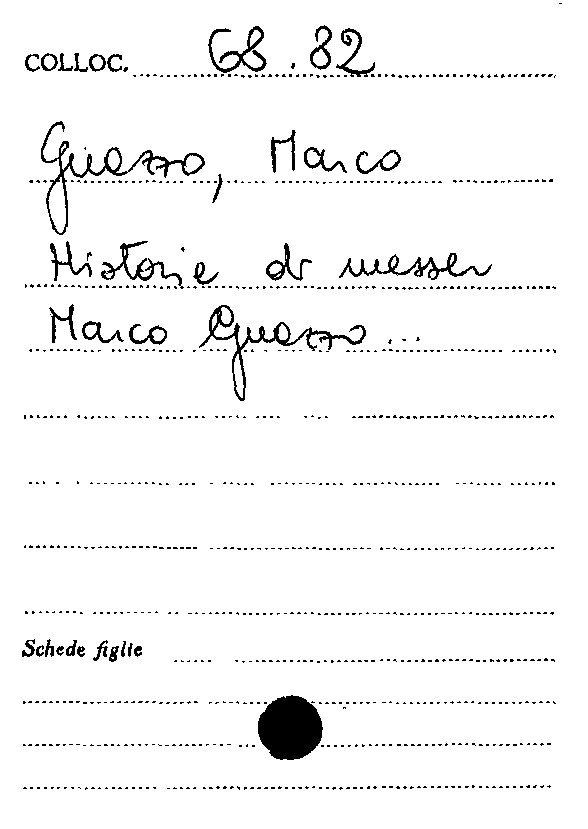 COLLOC. 68.82
Guazzo, Marco
Historie di messer
Marco Guazzo...
Schede figlie